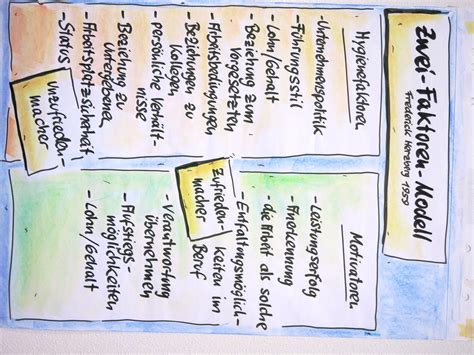 Zwei-Faktoren-Modell
Frederick Herzberg 1959
Hygienefaktoren
- Unternehmenspolitik
- Führungsstil
- Lohn/Gehalt
- Beziehung zum
Vorgesetzten
- Arbeitsbedingungen
- Beziehungen zu
Kollegen
- persönliche Verhält-
nisse
- Beziehung zu
Untergebenen
- Arbeitsplatzsicherheit
- Status
Unzufrieden-
macher
Motivatoren
- Leistungserfolg
- Anerkennung
- die Arbeit als solche
- Entfaltungsmöglich-
keiten im
Beruf
- Verantwortung
übernehmen
- Aufstiegs-
möglichkeiten
- Lohn/Gehalt
Zufrieden-
macher